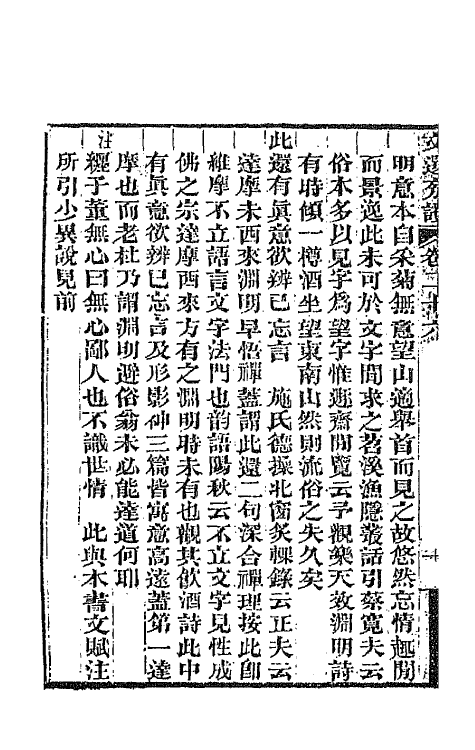 文選旁證 卷二十六
明意本自采菊無意望山適舉首而見之故悠然忘情趣閒
而景逸此未可於文字間求之苕溪漁隱叢話引蔡寬夫云
俗本多以見字為望字惟遯齋閒覽云予觀樂天效淵明詩
有時傾一樽酒坐望東南山然則流俗之失久矣
此還有眞意欲辨已忘言 施氏德操北窗炙輠錄云正夫云
達摩未西來淵明早悟禪蓋謂此還二句深合禪理按此卽
維摩不立語言文字法門也韵語陽秋云不立文字見性成
佛之宗達摩西來方有之淵明時未有也觀其飲酒詩此中
有眞意欲辨已忘言及形影神三篇皆寓意高遠蓋第一達
摩也而老杜乃謂淵明避俗翁未必能達道何耶
注纏子董無心曰無心鄙人也不識世情 此與本書文賦注
所引少異說見前